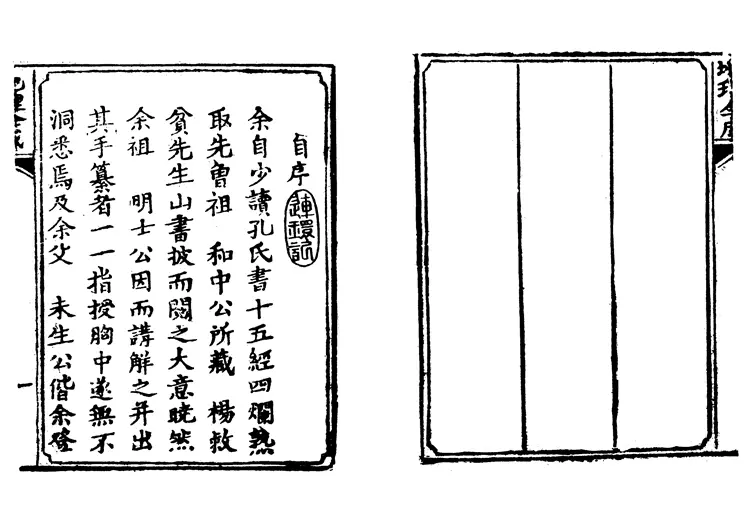 自序
余自少讀孔氏書十五經四爛熟
取先曾祖　和中公所藏　楊救
貧先生山書披而閱之大意曉然
余祖　明士公因而講解之并出
其手纂者一一指授胸中遂無不
洞悉焉及余父　未生公偕余登
一